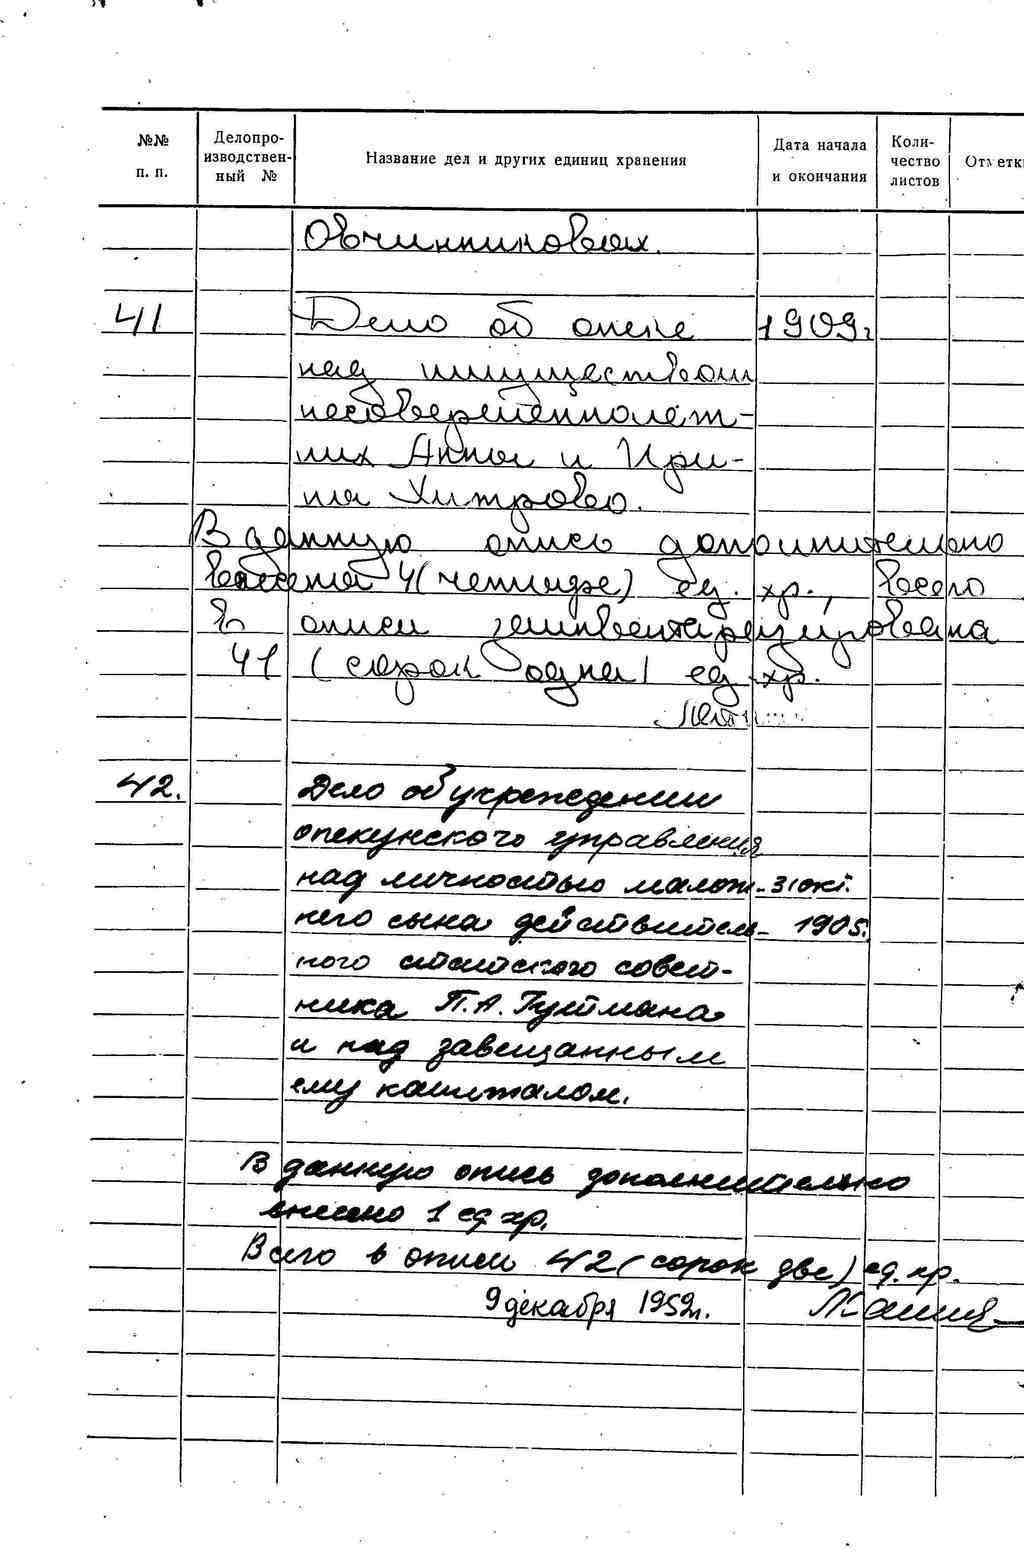 №№ п. п.
Делопро-
изводствен-
ный №
Название дел и других единиц хранения
Дата начала
и окончания
Коли-
чество
листов
Отметк
Овчинниковых.
41 Дело об опеке 1909г
над имуществом
несовершеннолет-
них Анны и Ири-
ны Хитрово.
В данную опись дополнительно
внесены 4 (четыре) ед. хр., всего
в описи заинвентаризирована
41 (сорок одна) ед. хр.
42. Дело об учреждении
опекунского управления
над личностью малолет- 31 окт.
него сына действитель- 1905.
ного статского совет-
ника П.А. Гутмана
и над завещанным
ему капиталом.
В данную опись дополнительно
внесено 1 ед хр.
Всего в описи 42 (сорок две) ед. хр.
9 декабря 1959г.